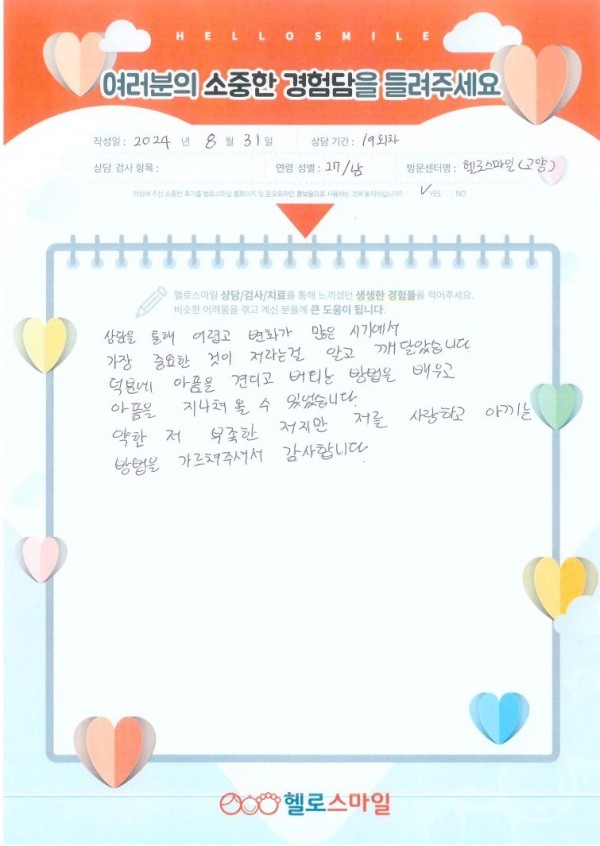 HELLOSMILE
여러분의 소중한 경험담을 들려주세요
작성일 : 2024 년 8 월 31 일 상담 기간 : 19회차
상담 검사 항목 : 연령 성별 : 27/남 방문센터명 : 헬로스마일(고양)
작성해 주신 소중한 후기를 헬로스마일 홈페이지 및 온오프라인 홍보용으로 사용하는 것에 동의하십니까? ✓ YES NO
헬로스마일 상담/검사/치료를 통해 느끼셨던 생생한 경험들을 적어주세요.
비슷한 어려움을 겪고 계신 분들께 큰 도움이 됩니다.
상담을 통해 어렵고 변화가 많은 시기에서
가장 중요한 것이 저라는걸 알고 깨달았습니다
덕분에 아픔을 견디고 버티는 방법을 배우고
아픔을 지나쳐 올 수 있었습니다.
약한 저 부족한 저지만 저를 사랑하고 아끼는
방법을 가르쳐주셔서 감사합니다.
헬로스마일